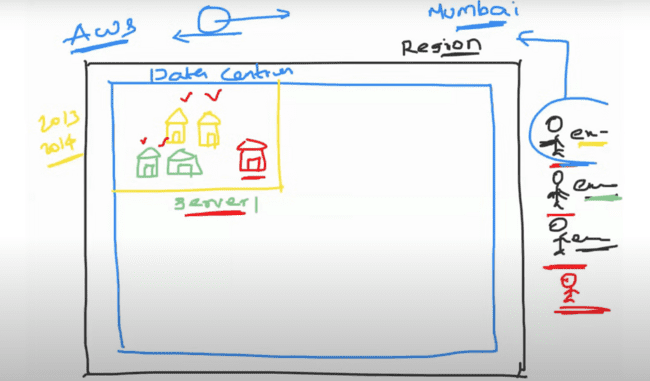 AWS
Mumbai
Region
Data Centre
2013
2014
Server 1